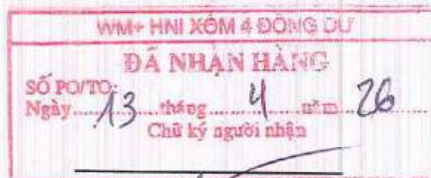 WM+ HNI XÓM 4 ĐÔNG DƯ
ĐÃ NHẬN HÀNG
SỐ PO/TO:
Ngày 13 tháng 4 năm 26
Chữ ký người nhận